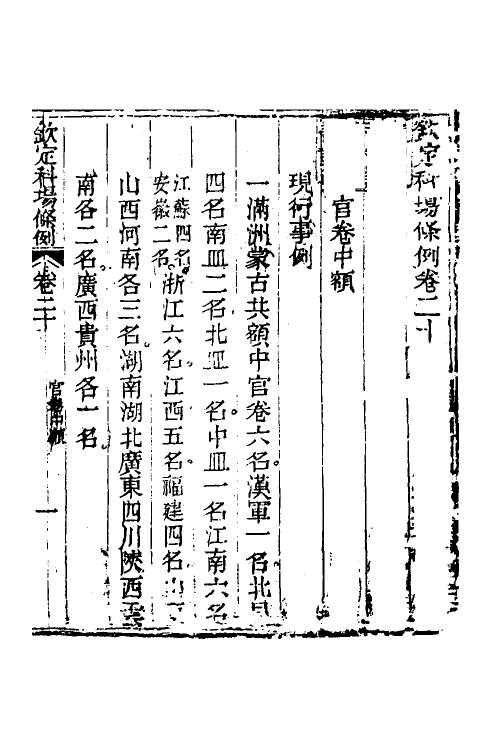 欽定科場條例卷二十
官卷中額
現行事例
一滿洲蒙古共額中官卷六名漢軍一名北貝
四名南皿二名北皿一名中皿一名江南六名
江蘇四名
安徽二名浙江六名江西五名福建四名山東
山西河南各三名湖南湖北廣東四川陝西雲
南各二名廣西貴州各一名
欽定科場條例 卷二十 官卷中額 一